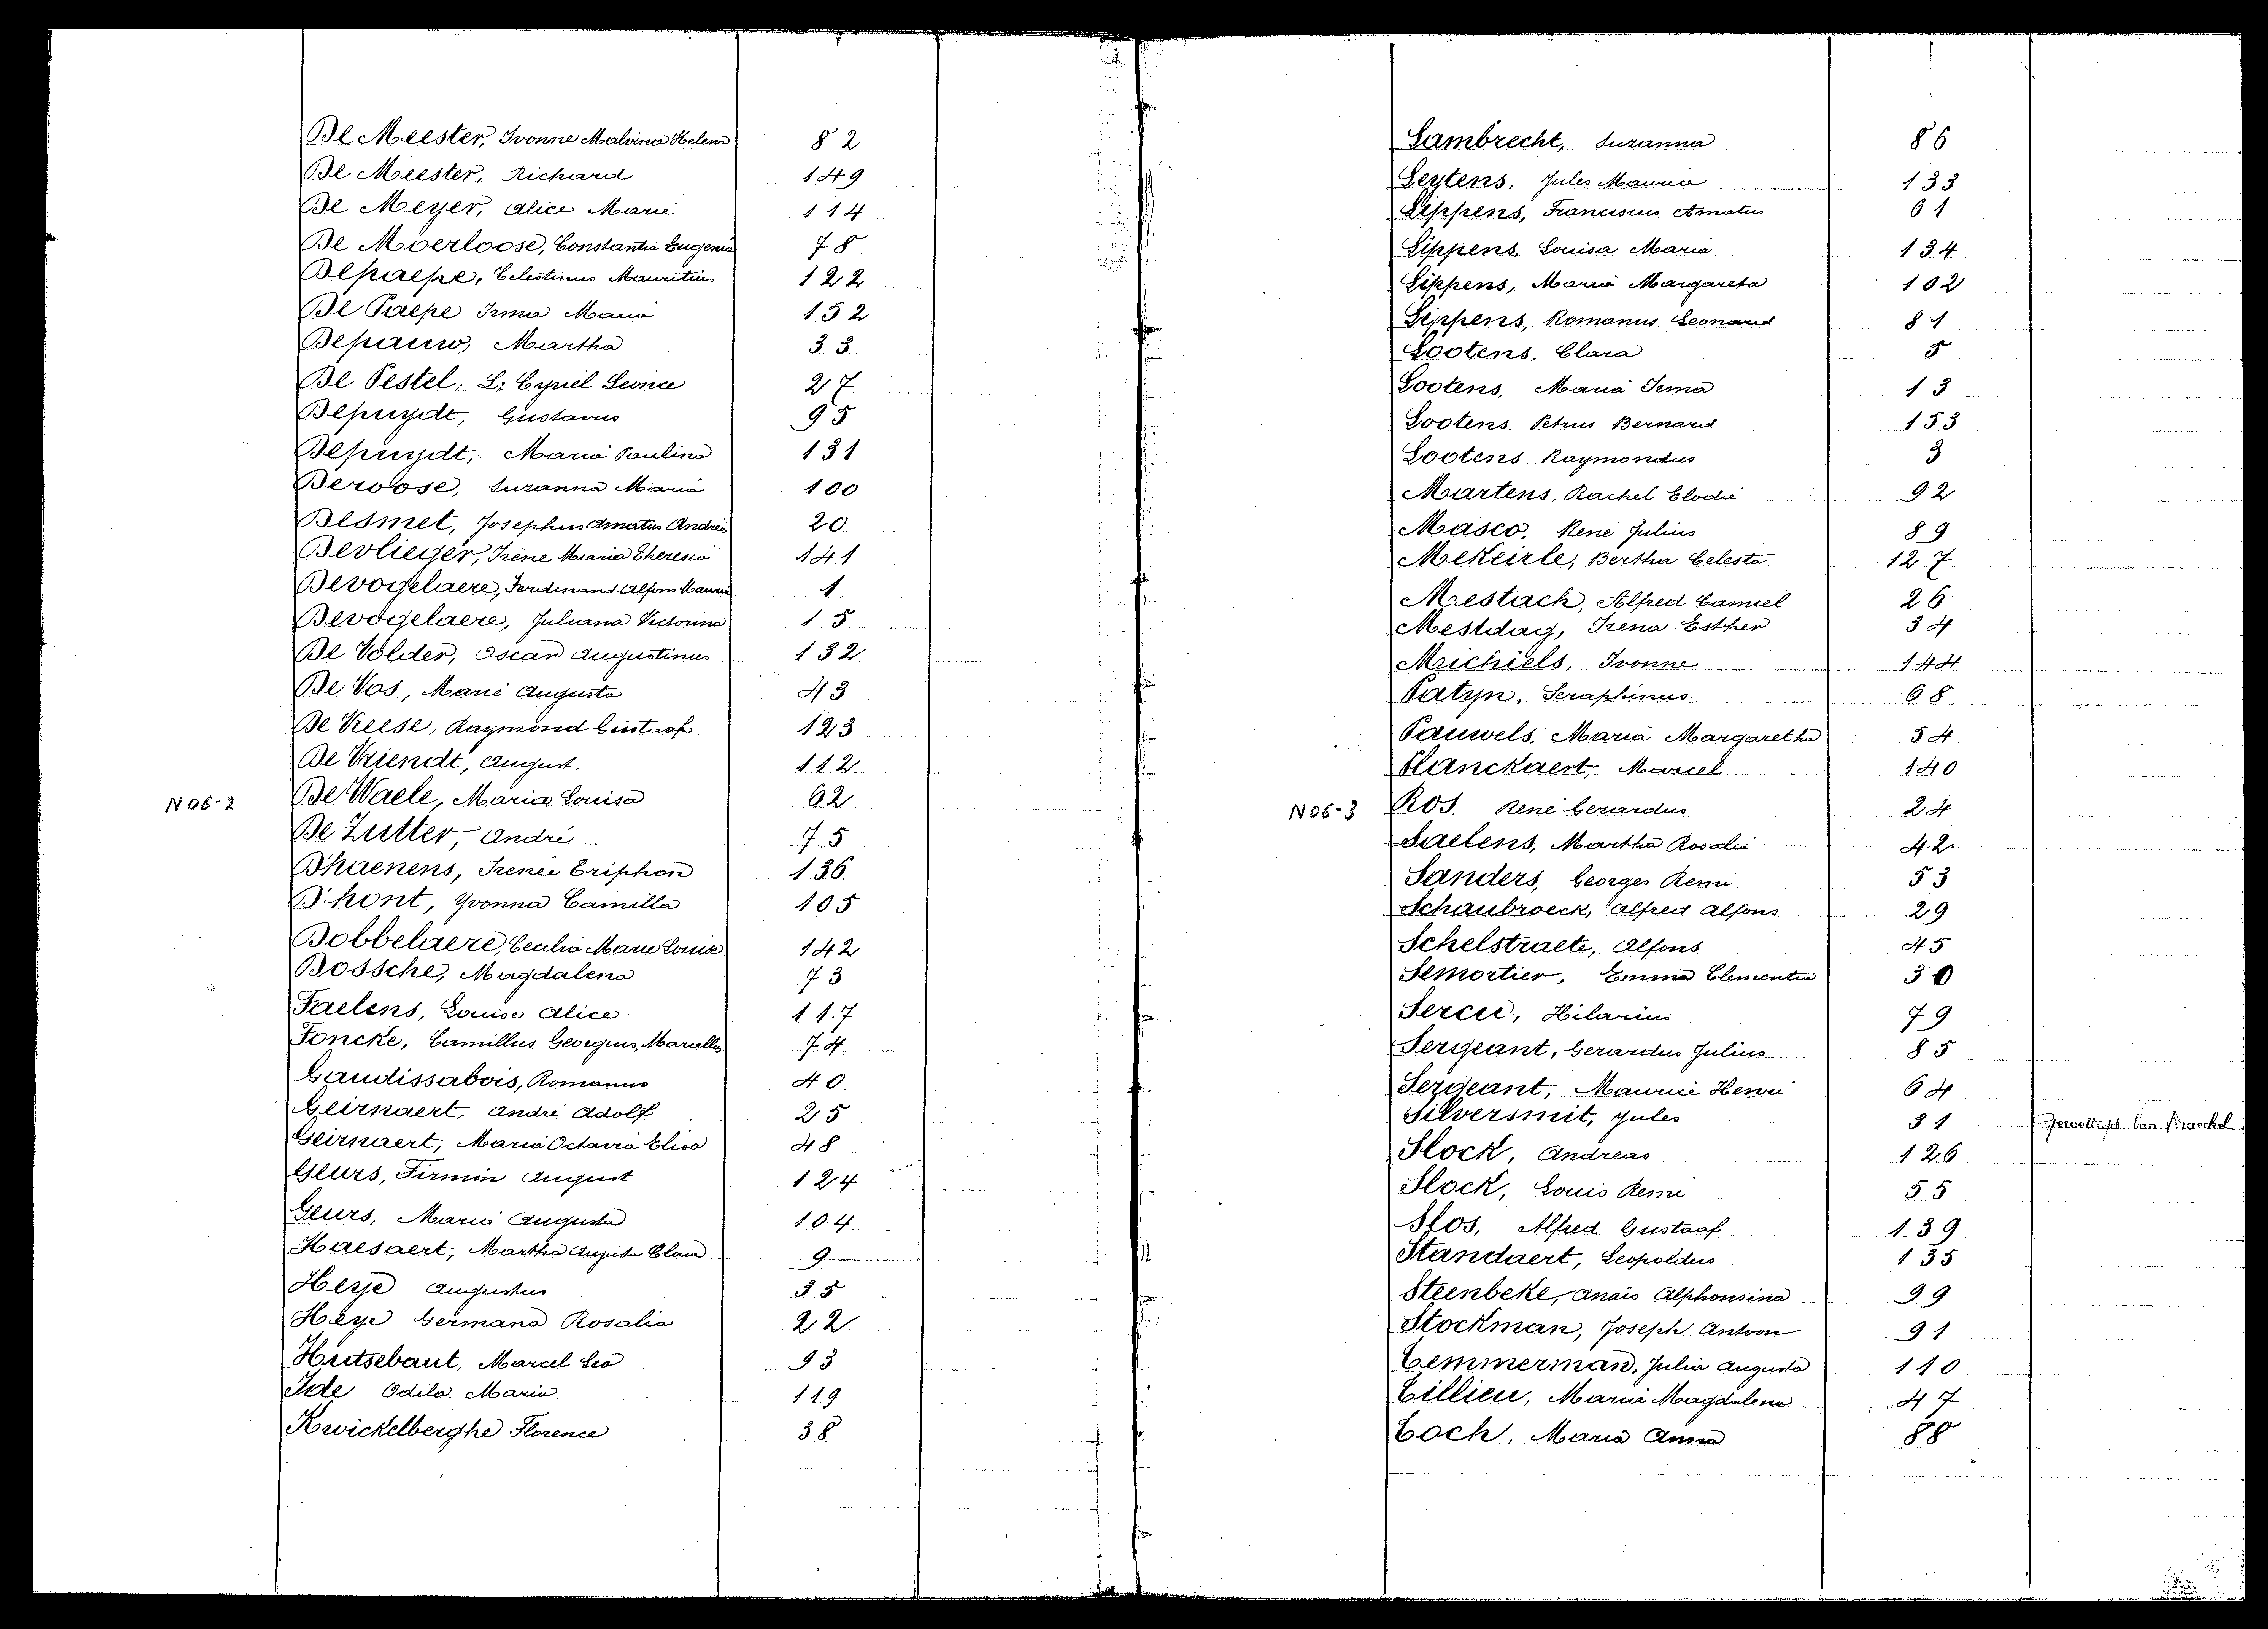 De Meester, Ivonne Malvina Helena 82
De Meester, Richard 149
De Meyer, Alice Marie 114
De Moerloose, Constantia Eugenia 78
Depaepe, Celestinus Mauritius 122
De Paepe Irma Maria 152
Depauw, Martha 33
De Pestel, L: Cyriel Leonce 27
Depuydt, Gustavus 95
Depuydt, Maria Paulina 131
Deroose, Suzanna Maria 100
Desmet, Josephus Amatus Andreas 20
Devlieger, Irène Maria Theresia 141
Devogelaere, Ferdinand Alfons Maurice 1
Devogelaere, Juliana Victorina 15
De Volder, Oscar Augustinus 132
De Vos, Marie Augusta 43
De Vreese, Raymond Gustaaf 123
De Vriendt, August. 112
N06-2 De Waele, Maria Louisa 62
De Zutter, André 75
D'haenens, Irenée Eriphon 136
D'hont, Yvonna Camilla 105
Dobbelaere, Cecilia Marie Louise 142
Dossche, Magdalena 73
Faelens, Louise Alice 117
Foncke, Camillus Georgius, Marcellus 74
Gaudissabois, Romanus 40
Geirnaert, André Adolf 25
Geirnaert, Maria Octavia Elisa 48
Geurs, Firmin August 124
Geurs, Maria Augusta 104
Haesaert, Martha Augusta Clara 9
Heye Augustus 35
Heye Germana Rosalia 22
Hutsebaut, Marcel Leo 93
Ide Odila Maria 119
Kwickelberghe Florence 38
Lambrecht, Suzanna 86
Leytens, Jules Maurice 133
Lippens, Franciscus Amatus 61
Lippens, Louisa Maria 134
Lippens, Maria Margareta 102
Lippens, Romanus Leonard 81
Lootens, Clara 5
Lootens, Maria Irma 13
Lootens Petrus Bernard 153
Lootens Raymondus 3
Martens, Rachel Elodie 92
Masco, René Julius 89
MeKeirle, Bertha Celesta 127
Mestach, Alfred Camiel 26
Mestdag, Irena Esther 34
Michiels, Ivonne 144
Patyn, Seraphinus 68
Pauwels, Maria Margaretha 54
Planckaert, Marcel 140
N06-3 Ros. René Gerardus 24
Saelens, Martha Rosalie 42
Sanders, Georges Remi 53
Schaubroeck, Alfred Alfons 29
Schelstraete, Alfons 45
Semortier, Emma Clementia 30
Sercu, Hilarius 79
Sergeant, Gerardus Julius 85
Sergeant, Maurice Henri 64
Silversmit, Jules 31
Slock, Andreas 126
Slock, Louis Remi 55
Slos, Alfred Gustaaf 139
Standaert, Leopoldus 135
Steenbeke, Anaïs Alphonsina 99
Stockman, Joseph Antoon 91
Temmerman, Julia Augusta 110
Tillieu, Maria Magdalena 47
Toch, Maria Anna 88